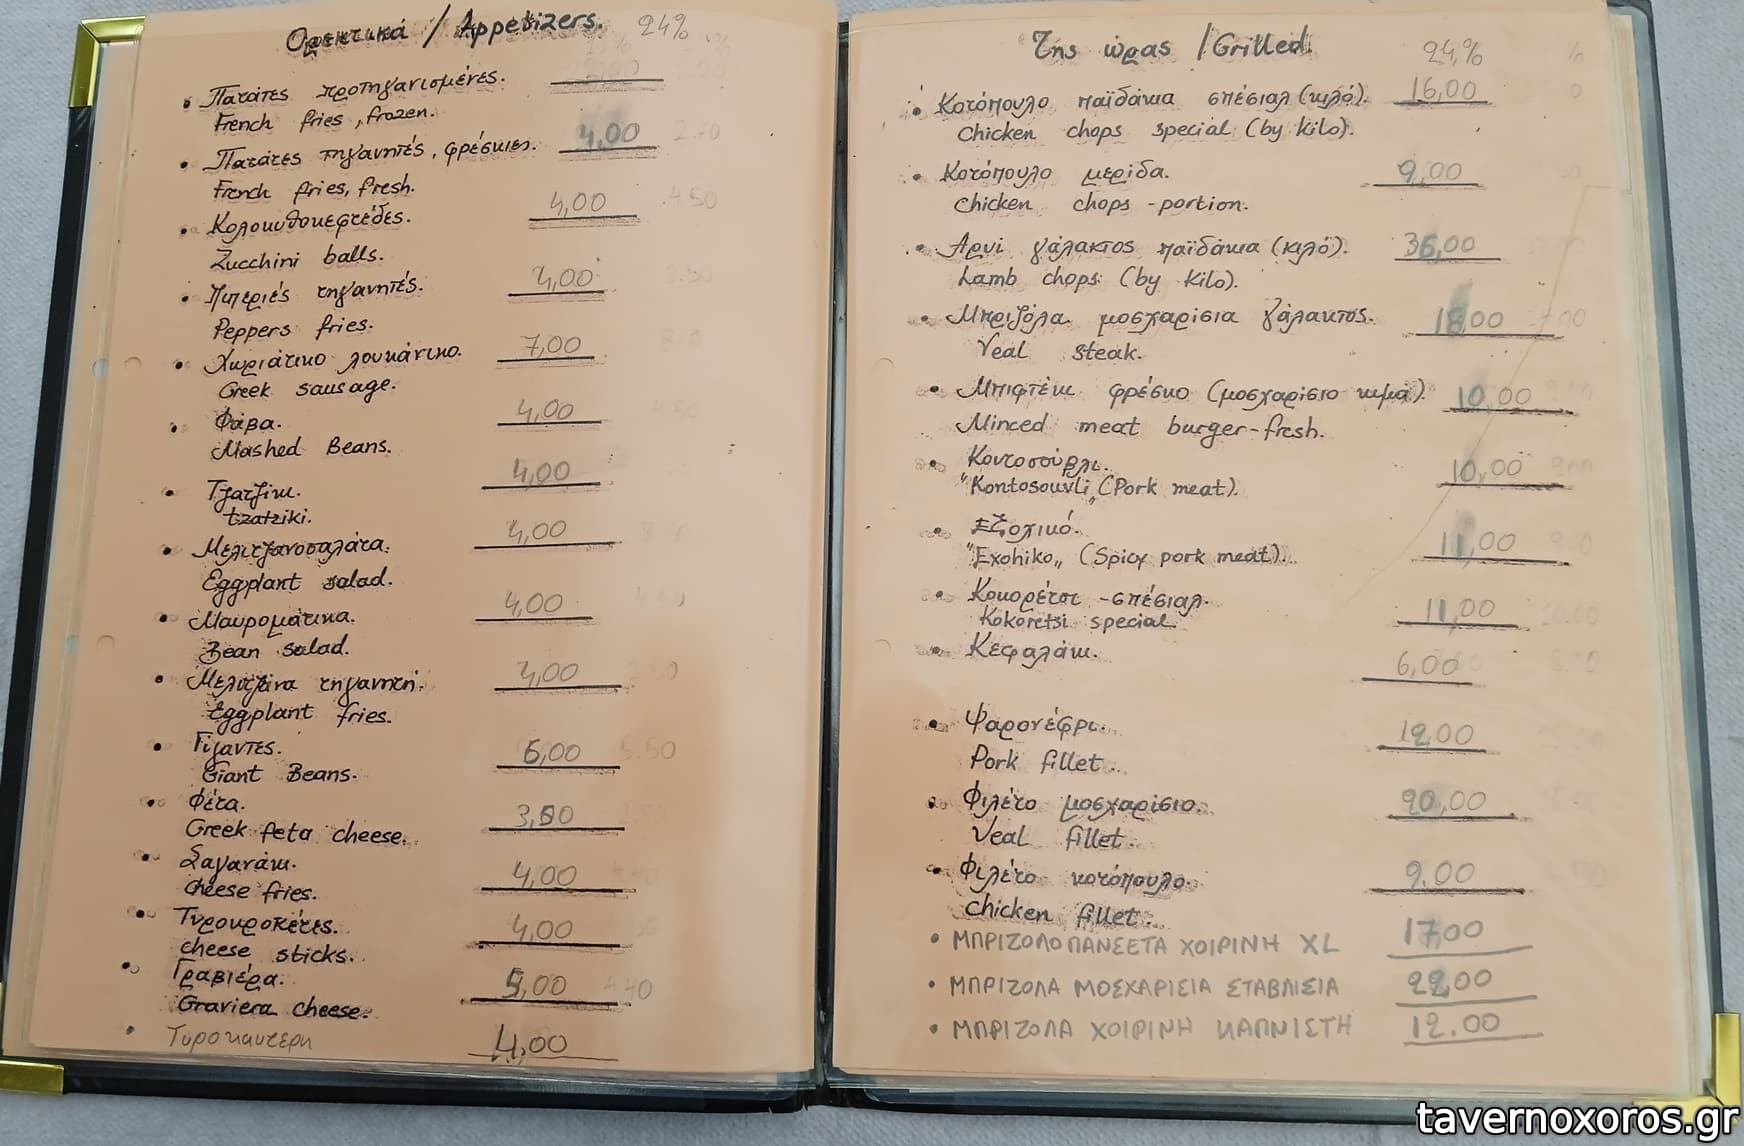 Ορεκτικά / Appetizers. 24%
• Πατάτες προτηγανισμένες.
French fries, frozen.
• Πατάτες τηγανητές, φρέσκιες. 4,00
French fries, fresh.
• Κολοκυθοκεφτέδες. 4,00
Zucchini balls.
• Πιπεριές τηγανητές. 4,00
Peppers fries.
• Χωριάτικο λουκάνικο. 7,00
Greek sausage.
• Φάβα. 4,00
Mashed Beans.
• Τζατζίκι. 4,00
tzatziki.
• Μελιτζανοσαλάτα. 4,00
Eggplant salad.
• Μαυρομάτικα. 4,00
Bean salad.
• Μελιτζάνα τηγανητή. 4,00
Eggplant fries.
• Γίγαντες. 6,00
Giant Beans.
• Φέτα. 3,50
Greek feta cheese.
• Σαγανάκι. 4,00
cheese fries.
• Τυροκροκέτες. 4,00
cheese sticks.
• Γραβιέρα. 5,00
Graviera cheese.
• Τυροκαυτερη 4.00
Της ώρας / Grilled. 24%
• Κοτόπουλο παϊδάκια σπέσιαλ (κιλό). 16,00
Chicken chops special (by kilo).
• Κοτόπουλο μερίδα. 9,00
Chicken chops - portion.
• Αρνί γάλακτος παϊδάκια (κιλό). 36,00
Lamb chops (by kilo).
• Μπριζόλα μοσχαρίσια γάλακτος. 18,00
Veal steak.
• Μπιφτέκι φρέσκο (μοσχαρίσιο κιμά). 10,00
Minced meat burger-fresh.
• Κοντοσούβλι. 10,00
"Kontosouvli" (Pork meat).
• Εξοχικό. 11,00
"Exohiko" (Spicy pork meat).
• Κοκορέτσι - σπέσιαλ. 11,00
Kokoretsi special.
• Κεφαλάκι. 6,00
• Ψαρονέφρι. 12,00
Pork fillet.
• Φιλέτο μοσχαρίσιο. 20,00
Veal fillet.
• Φιλέτο κοτόπουλο. 9,00
Chicken fillet.
• ΜΠΡΙΖΟΛΟΠΑΝΣΕΤΑ ΧΟΙΡΙΝΗ XL 17,00
• ΜΠΡΙΖΟΛΑ ΜΟΣΧΑΡΙΣΙΑ ΣΤΑΒΛΙΣΙΑ 22,00
• ΜΠΡΙΖΟΛΑ ΧΟΙΡΙΝΗ ΚΑΠΝΙΣΤΗ 12.00
tavernoxoros.gr